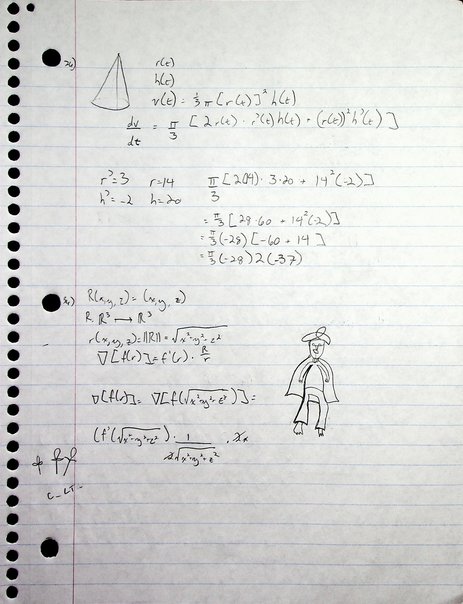 r(t)
h(t)
v(t) = 1/3 π [r(t)]² h(t)
dv/dt = π/3 [2r(t) · r'(t)h(t) + (r(t))² h'(t)]
r' = 3 r = 14 π/3 [2(14) · 3 · 20 + 14²(-2)]
h' = -2 h = 20
= π/3 [28 · 60 + 14²(-2)]
= π/3 (-28) [-60 + 14]
= π/3 (-28) 2 (-37)
R(x,y,z) = (x,y,z)
R: ℝ³ → ℝ³
r(x,y,z) = ||R|| = √x²+y²+z²
∇[f(r)] = f'(r) · R/r
∇[f(r)] = ∇[f(√x²+y²+z²)] =
(f'(√x²+y²+z²) · 1/2√x²+y²+z² · 2x